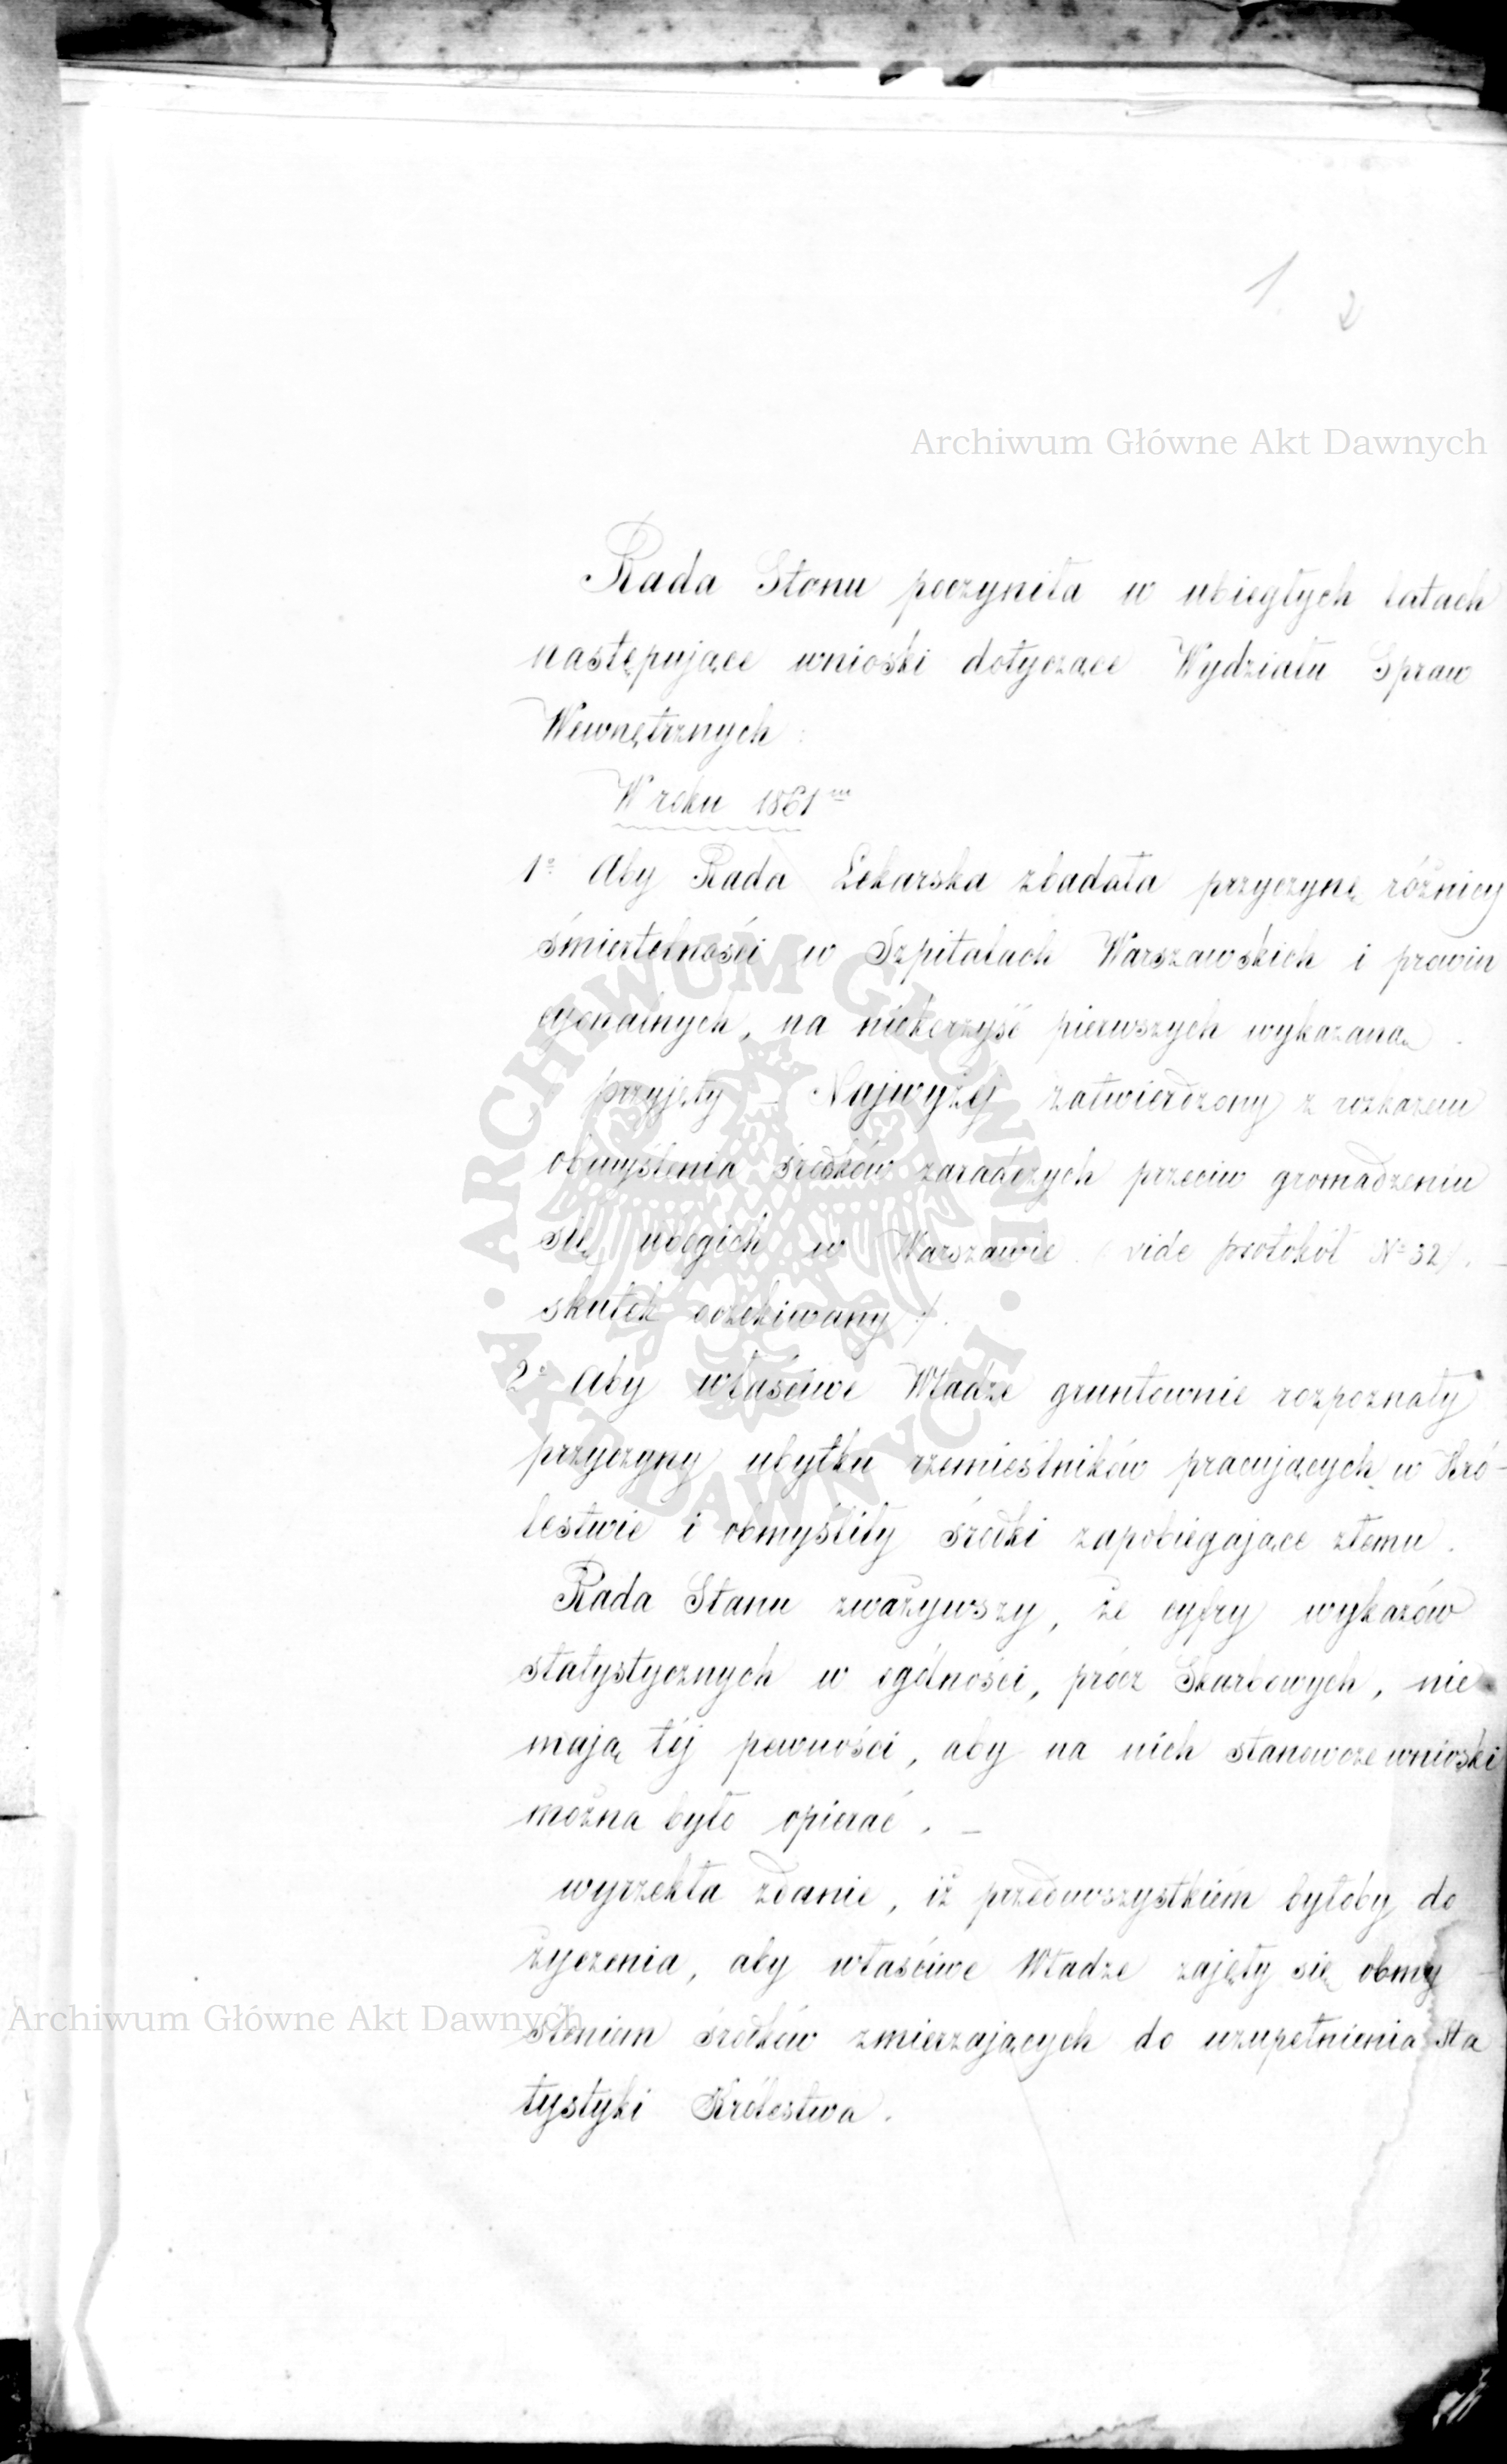 1. 2
Archiwum Główne Akt Dawnych
Rada Stanu poczyniła w ubiegłych latach
następujące wnioski dotyczące Wydziału Spraw
Wewnętrznych:
W roku 1861ym
1o Aby Rada Lekarska zbadała przyczynę różnicy
śmiertelności w Szpitalach Warszawskich i prowin
cyonalnych, na niekorzyść pierwszych wykazaną.
przyjęty – Najwyżej zatwierdzony z rozkazem
obmyślenia środków zaradczych przeciw gromadzeniu
się ubogich w Warszawie. (vide protokół No 32). –
skutek oczekiwany).
2o Aby właściwe Władze gruntownie rozpoznały
przyczyny ubytku rzemieślników pracujących w Kró-
lestwie i obmyśliły środki zapobiegające złemu.
Rada Stanu zważywszy, że cyfry wykazów
statystycznych w ogólności, prócz Skarbowych, nie
mają téj pewności, aby na nich stanowcze wnioski
można było opierać. –
wyrzekła zdanie, iż przedewszystkiém byłoby do
życzenia, aby właściwe Władze zajęły się obmy
śleniem środków zmierzających do uzupełnienia Sta
tystyki Królestwa.
Archiwum Główne Akt Dawnych
ARCHIWUM GŁÓWNE • AKT DAWNYCH •